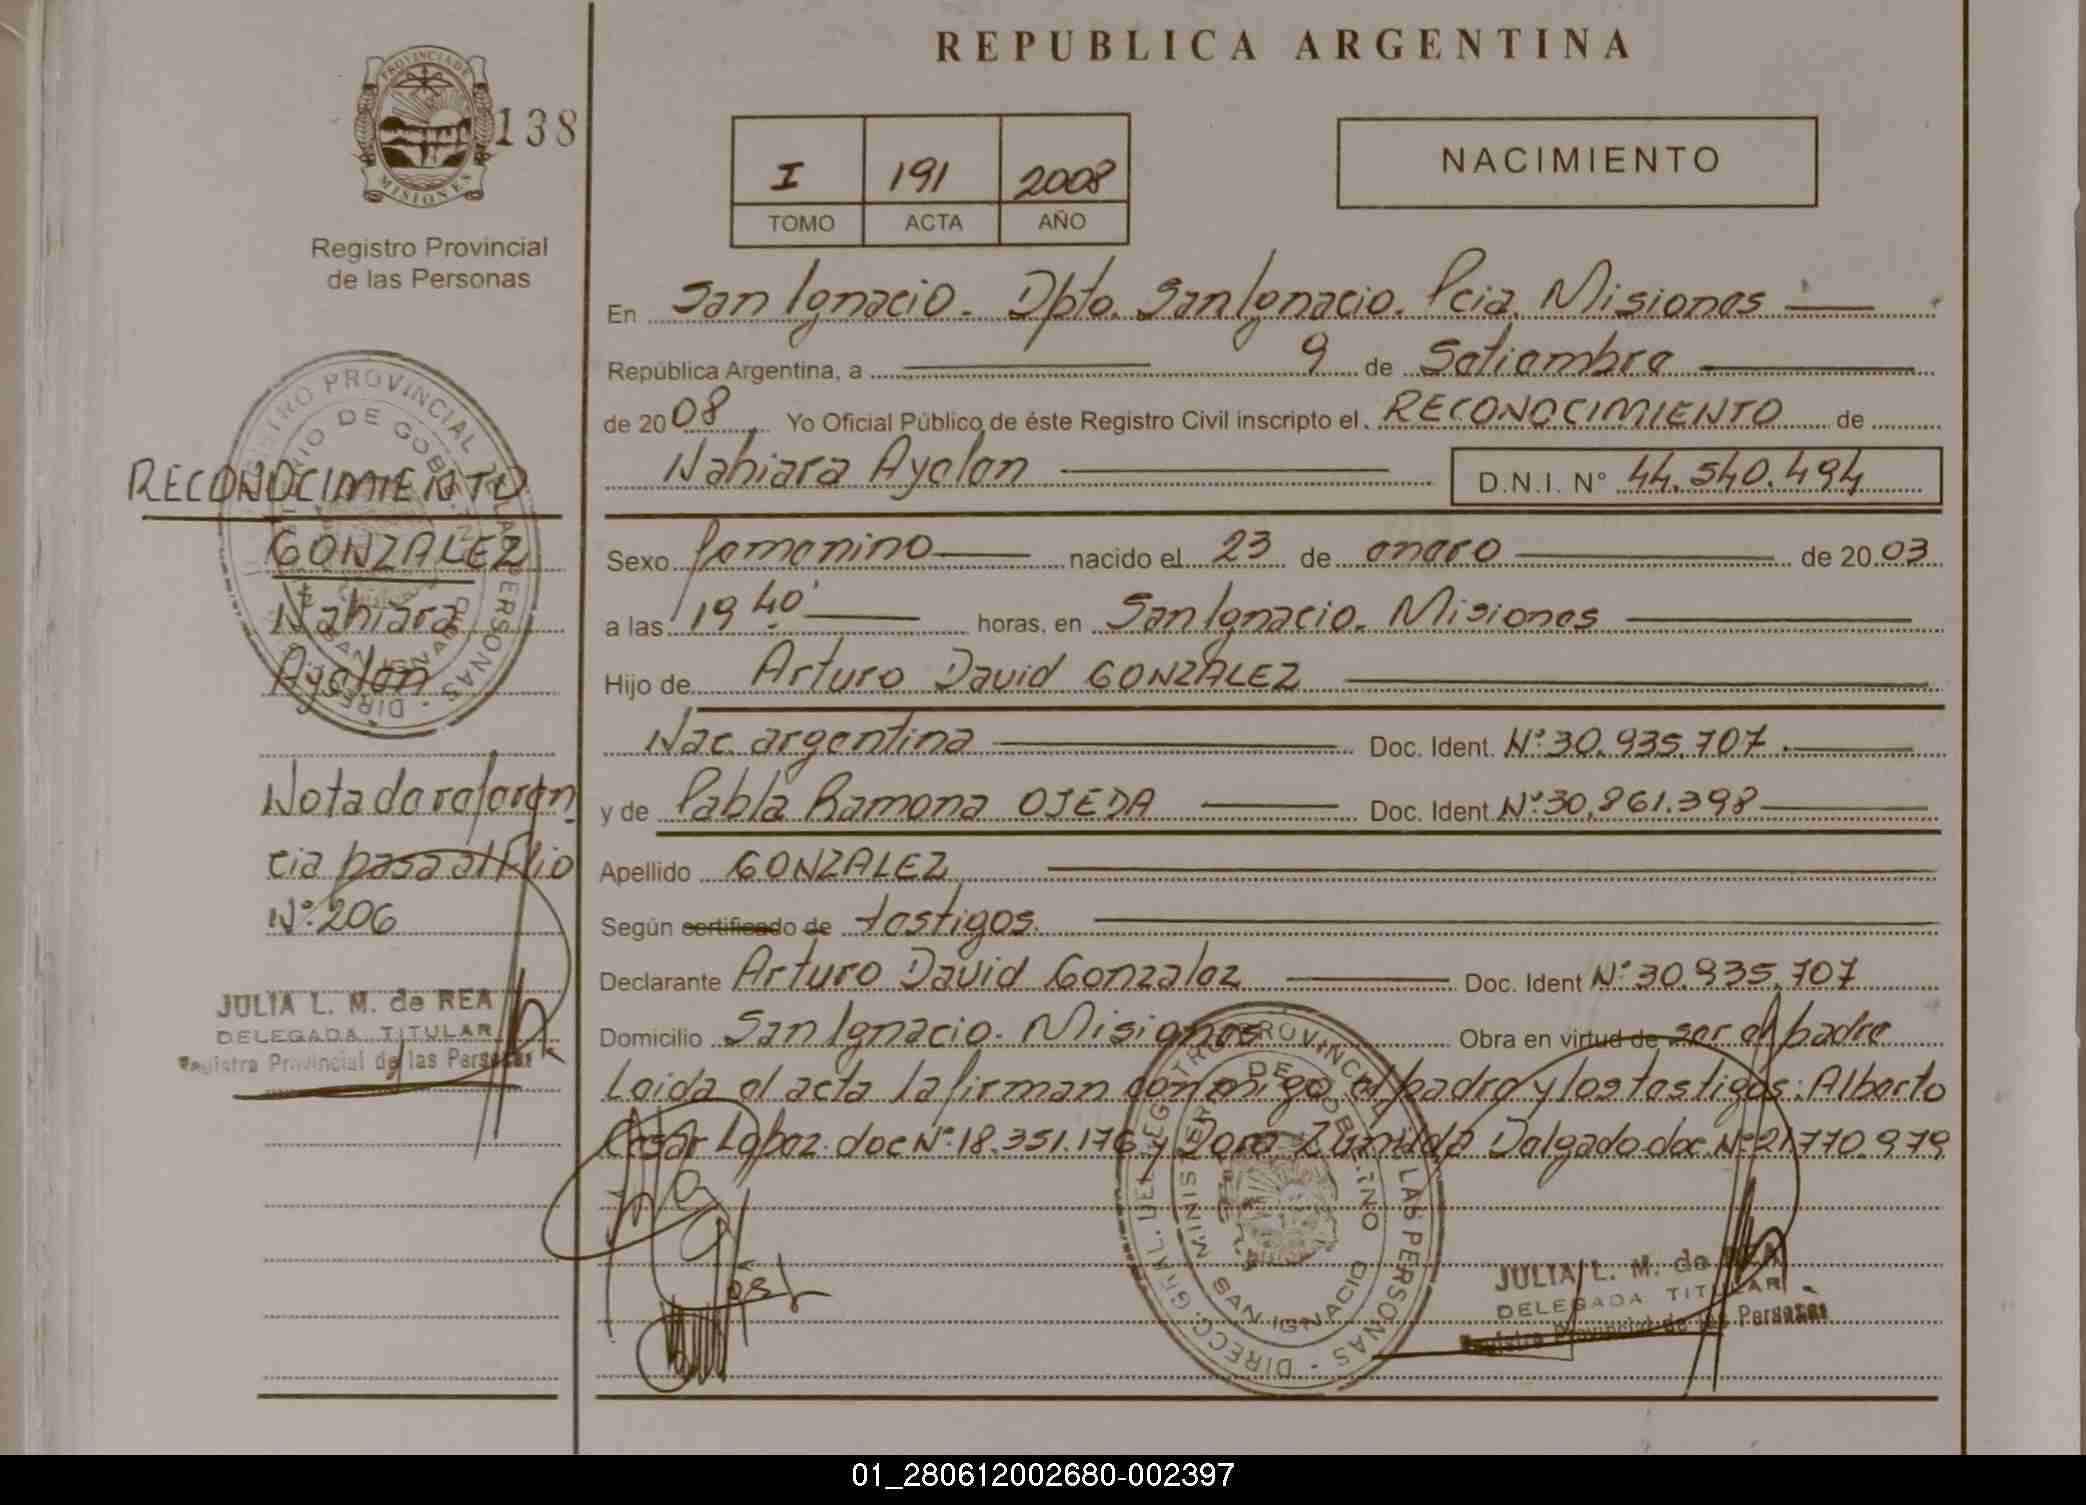 REPUBLICA ARGENTINA
PROVINCIA DE
MISIONES
138
Registro Provincial
de las Personas
I 191 2008
TOMO ACTA AÑO
NACIMIENTO
En San Ignacio. Dpto. San Ignacio. Pcia. Misiones
República Argentina, a 9 de Setiembre
de 2008 Yo Oficial Público de éste Registro Civil inscripto el RECONOCIMIENTO de
Nahiara Ayelen D.N.I. N° 44.540.494
Sexo femenino nacido el 23 de enero de 2003
a las 19 40' horas, en San Ignacio. Misiones
Hijo de Arturo David GONZALEZ
Nac. argentina Doc. Ident. N° 30.935.707
y de Pabla Ramona OJEDA Doc. Ident N° 30.861.398
Apellido GONZALEZ
Según certificado de testigos
Declarante Arturo David Gonzalez Doc. Ident N° 30.935.707
Domicilio San Ignacio. Misiones Obra en virtud de ser el padre
Leida el acta la firman conmigo el padre y los testigos: Alberto
Cesar Lopez doc N° 18.351.176 y Delgado doc N° 21.770.979
RECONOCIMIENTO
GONZALEZ
Nahiara
Ayelen
Nota de referen
cia pasa al folio
N° 206
JULIA L. M. de REA
DELEGADA TITULAR
Registro Provincial de las Personas
DIRECC. GRAL. DEL REGISTRO PROVINCIAL DE LAS PERSONAS
MINISTERIO DE GOBIERNO
SAN IGNACIO
JULIA L. M. de REA
DELEGADA TITULAR
Registro Provincial de las Personas
01_280612002680-002397